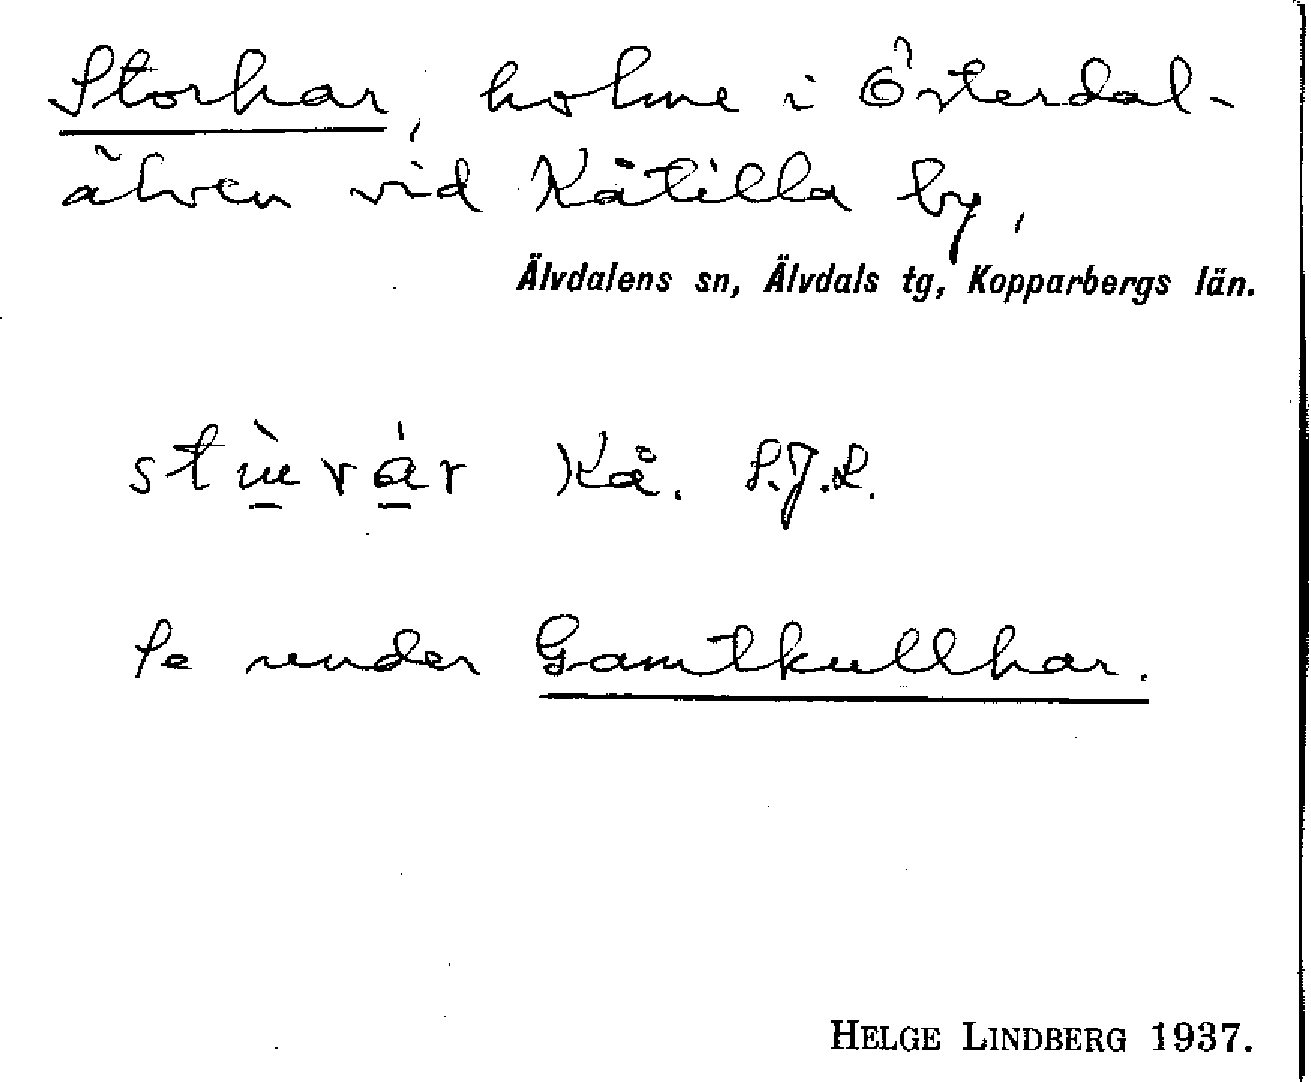 Storhar, holme i Österdal-
älven vid Kåtilla by,
Älvdalens sn, Älvdals tg, Kopparbergs län.
Kå. S.J.L.
Se under Gamtkullhar.
HELGE LINDBERG 1937.